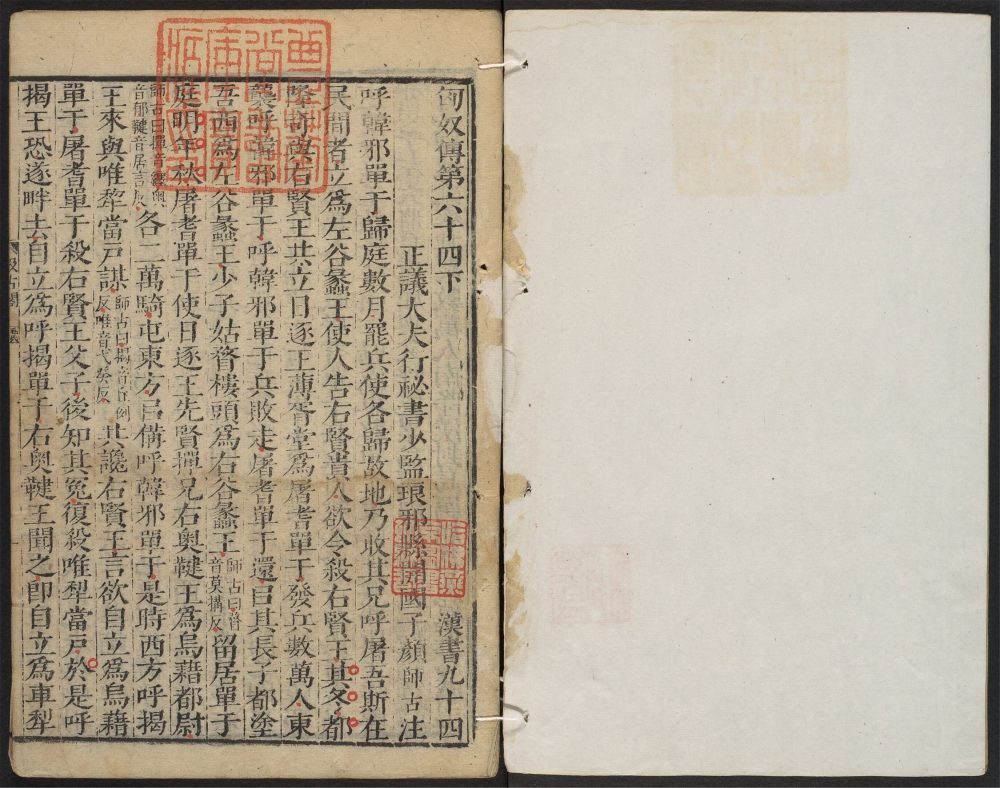 匈奴傳第六十四下 漢書九十四
正議大夫行祕書少監琅邪縣開國子顏師古注
呼韓邪單于歸庭數月罷兵使各歸故地乃收其兄呼屠吾斯在
民間者立爲左谷蠡王使人告右賢貴人欲令殺右賢王其冬都
隆奇與右賢王共立日逐王薄胥堂爲屠耆單于發兵數萬人東
襲呼韓邪單于呼韓邪單于兵敗走屠耆單于還㠯其長子都塗
吾西爲左谷蠡王少子姑瞀樓頭爲右谷蠡王師古曰瞀音莫搆反留居單于
庭明年秋屠耆單于使日逐王先賢撣兄右奧鞬王爲烏藉都尉
師古曰撣音纏奧音郁鞬音居言反各二萬騎屯東方㠯備呼韓邪單于是時西方呼揭
王來與唯犂當戶謀師古曰揭音丘例反唯音弋癸反共讒右賢王言欲自立爲烏藉
單于屠耆單于殺右賢王父子後知其冤復殺唯犂當戶於是呼
揭王恐遂畔去自立爲呼揭單于右奧鞬王聞之卽自立爲車犂